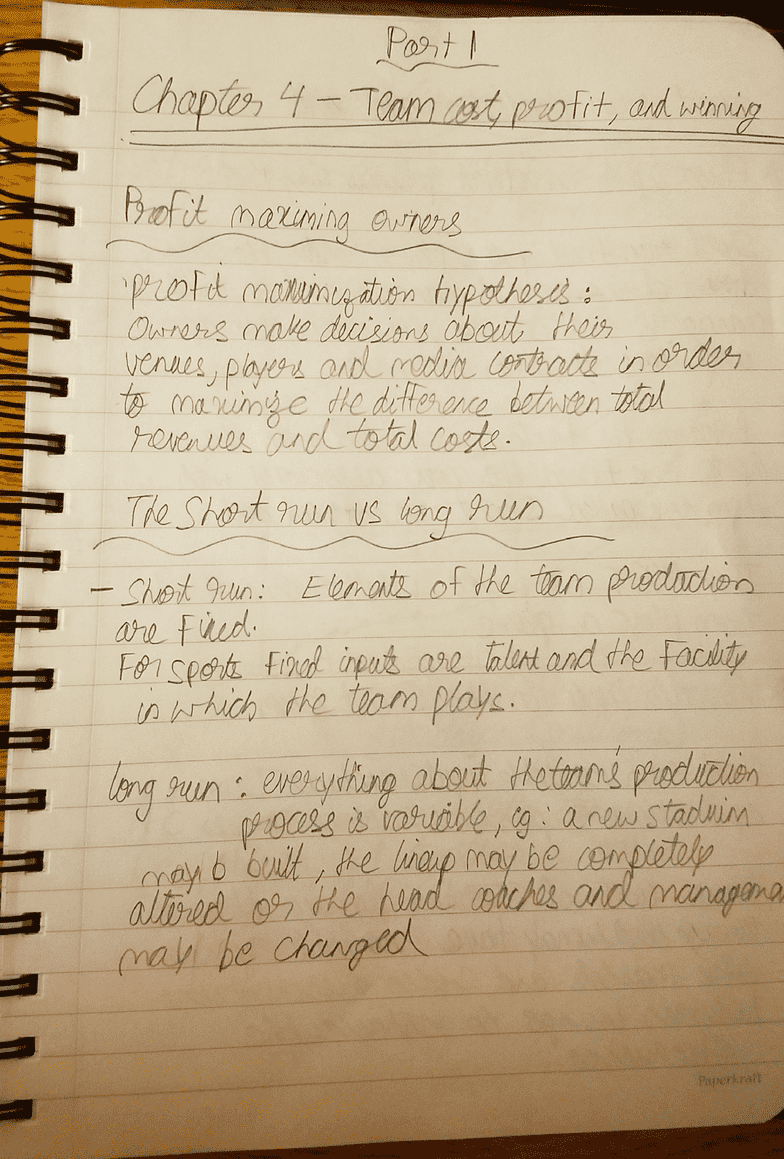 Part 1
Chapter 4 – Team cost, profit, and winning
Profit maximing owners
profit maximization hypothesis :
Owners make decisions about their
venues, players and media contracts in order
to maximize the difference between total
revenues and total costs.
The Short run vs long run
– Short run: Elements of the team production
are fixed.
For sports fixed inputs are talent and the facility
in which the team plays.
long run : everything about the team's production
process is variable, eg : a new staduim
may b built, the lineup may be completely
altered or the head coaches and manageme
may be changed
Paperkraft